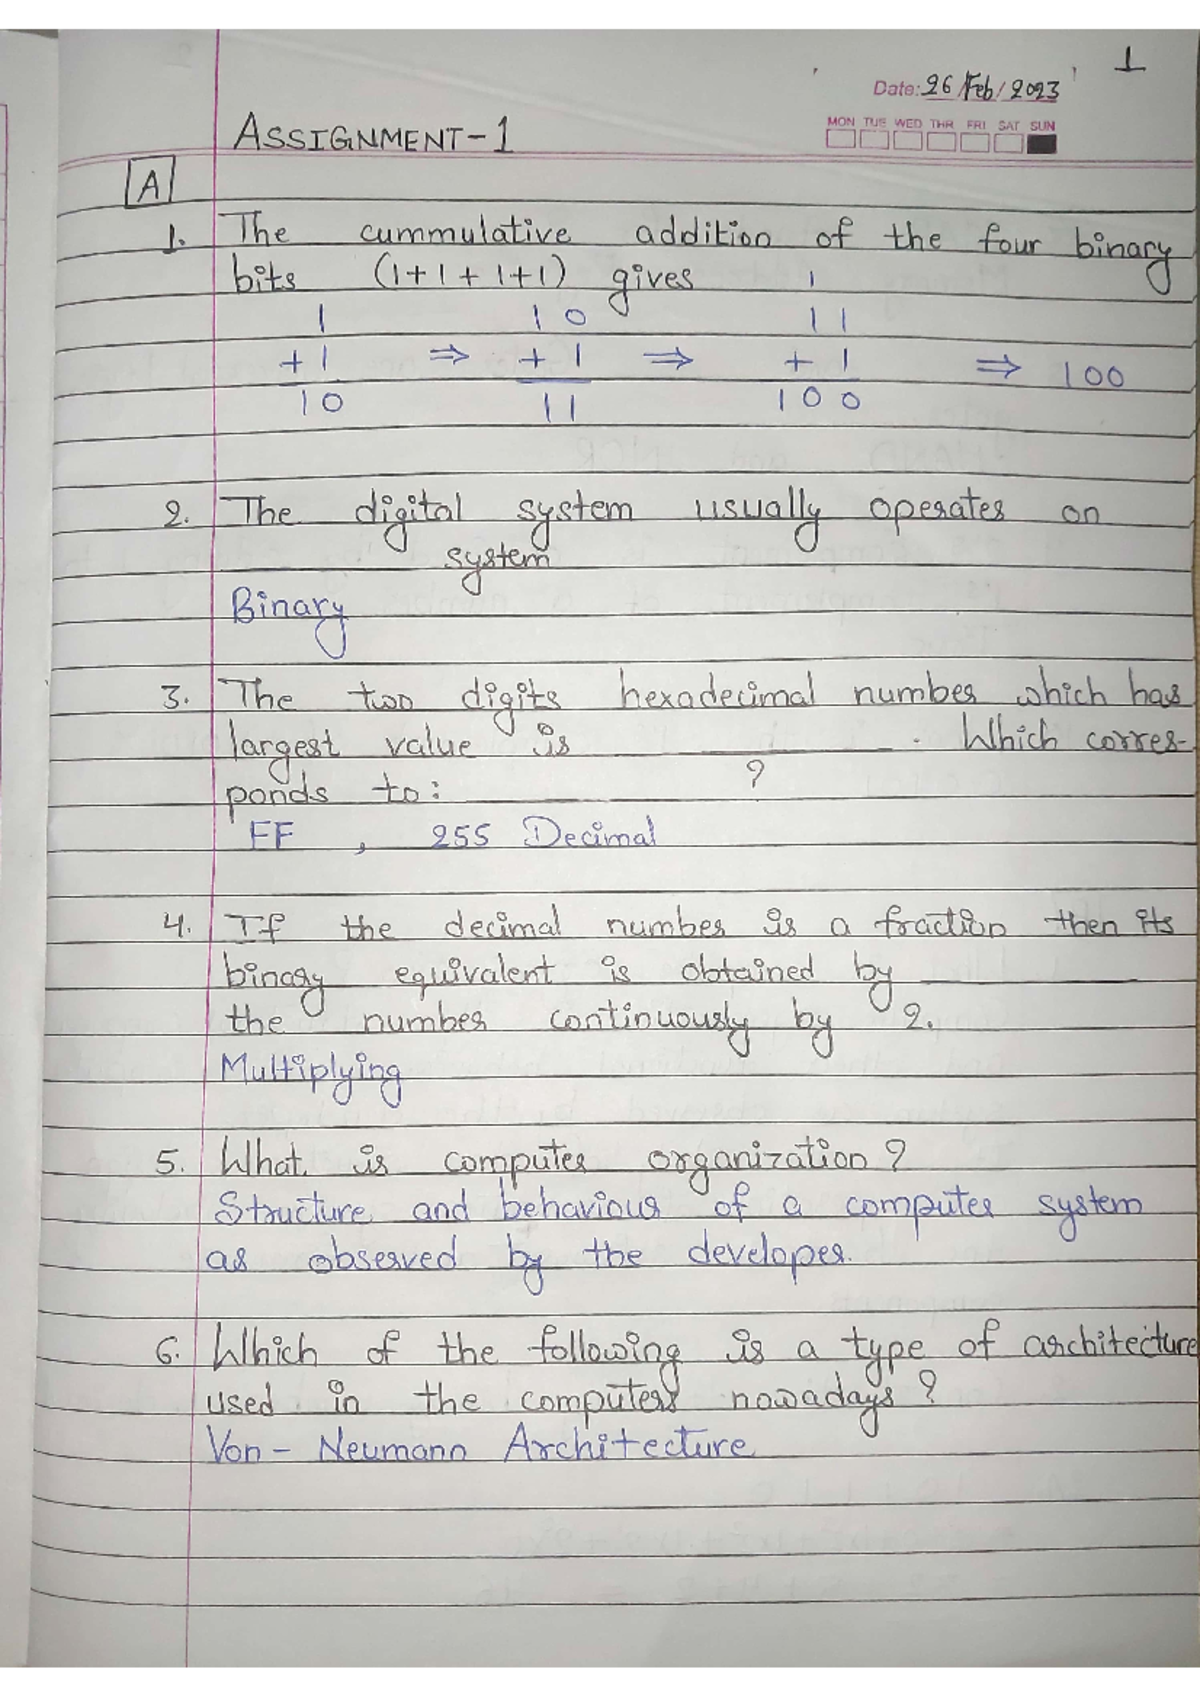 1
Date: 26/Feb/2023
MON TUE WED THR FRI SAT SUN
ASSIGNMENT-1
A
1. The cummulative addition of the four binary
bits (1+1+1+1) gives
1
1 10 11
+1 ⇒ +1 ⇒ +1 ⇒ 100
10 11 100
2. The digital system usually operates on
system
Binary
3. The two digits hexadecimal number which has
largest value is ________. Which corres-
ponds to: ________?
FF , 255 Decimal
4. If the decimal number is a fraction then its
binary equivalent is obtained by ________
the number continuously by 2.
Multiplying
5. What is computer organization?
Structure and behaviour of a computer system
as observed by the developer.
6. Which of the following is a type of architecture
used in the computers nowadays?
Von-Neumann Architecture